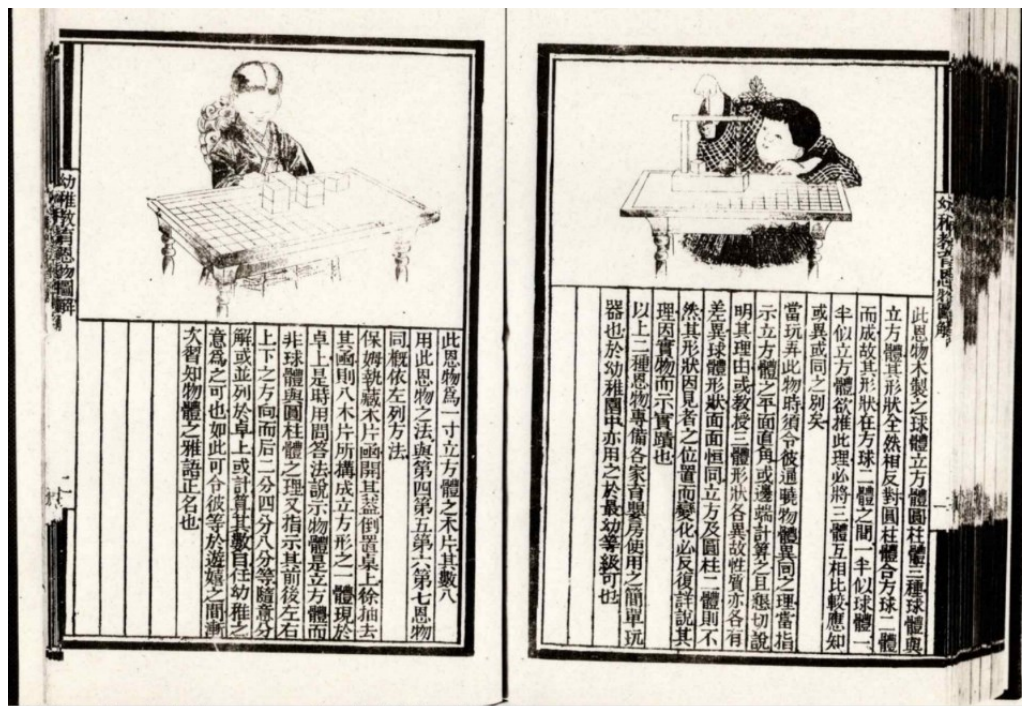 幼稚教育恩物圖解
此恩物木製之球體立方體圓柱體三種球體與
立方體其形狀全然相反對圓柱體合方球二體
而成故其形狀在方球二體之間一半似球體一
半似立方體欲推此理必將三體互相比較應知
或異或同之別矣
當玩弄此物時須令彼通曉物體異同之理當指
示立方體之平面直角或邊端計算之且懇切說
明其理由或教授三體形狀各異故性質亦各有
差異球體形狀面面恒同立方及圓柱二體則不
然其形狀因見者之位置而變化必反復詳說其
理因實物而示實蹟也
以上二種恩物專備各家育嬰房使用之簡單玩
器也於幼稚園中亦用之於最幼等級可也
此恩物爲一寸立方體之木片其數八
用此恩物之法與第四第五第六第七恩物
同概依左列方法
保姆執藏木片函開其蓋倒置桌上徐抽去
其函則八木片所構成立方形之一體現於
卓上是時用問答法說示物體是立方體而
非球體與圓柱體之理又指示其前後左右
上下之方向而后二分四分八分等隨意分
解或並列於卓上或計算其數目任幼稚之
意爲之可也如此可令彼等於遊嬉之間漸
次習知物體之雅語正名也
幼稚教育恩物圖解